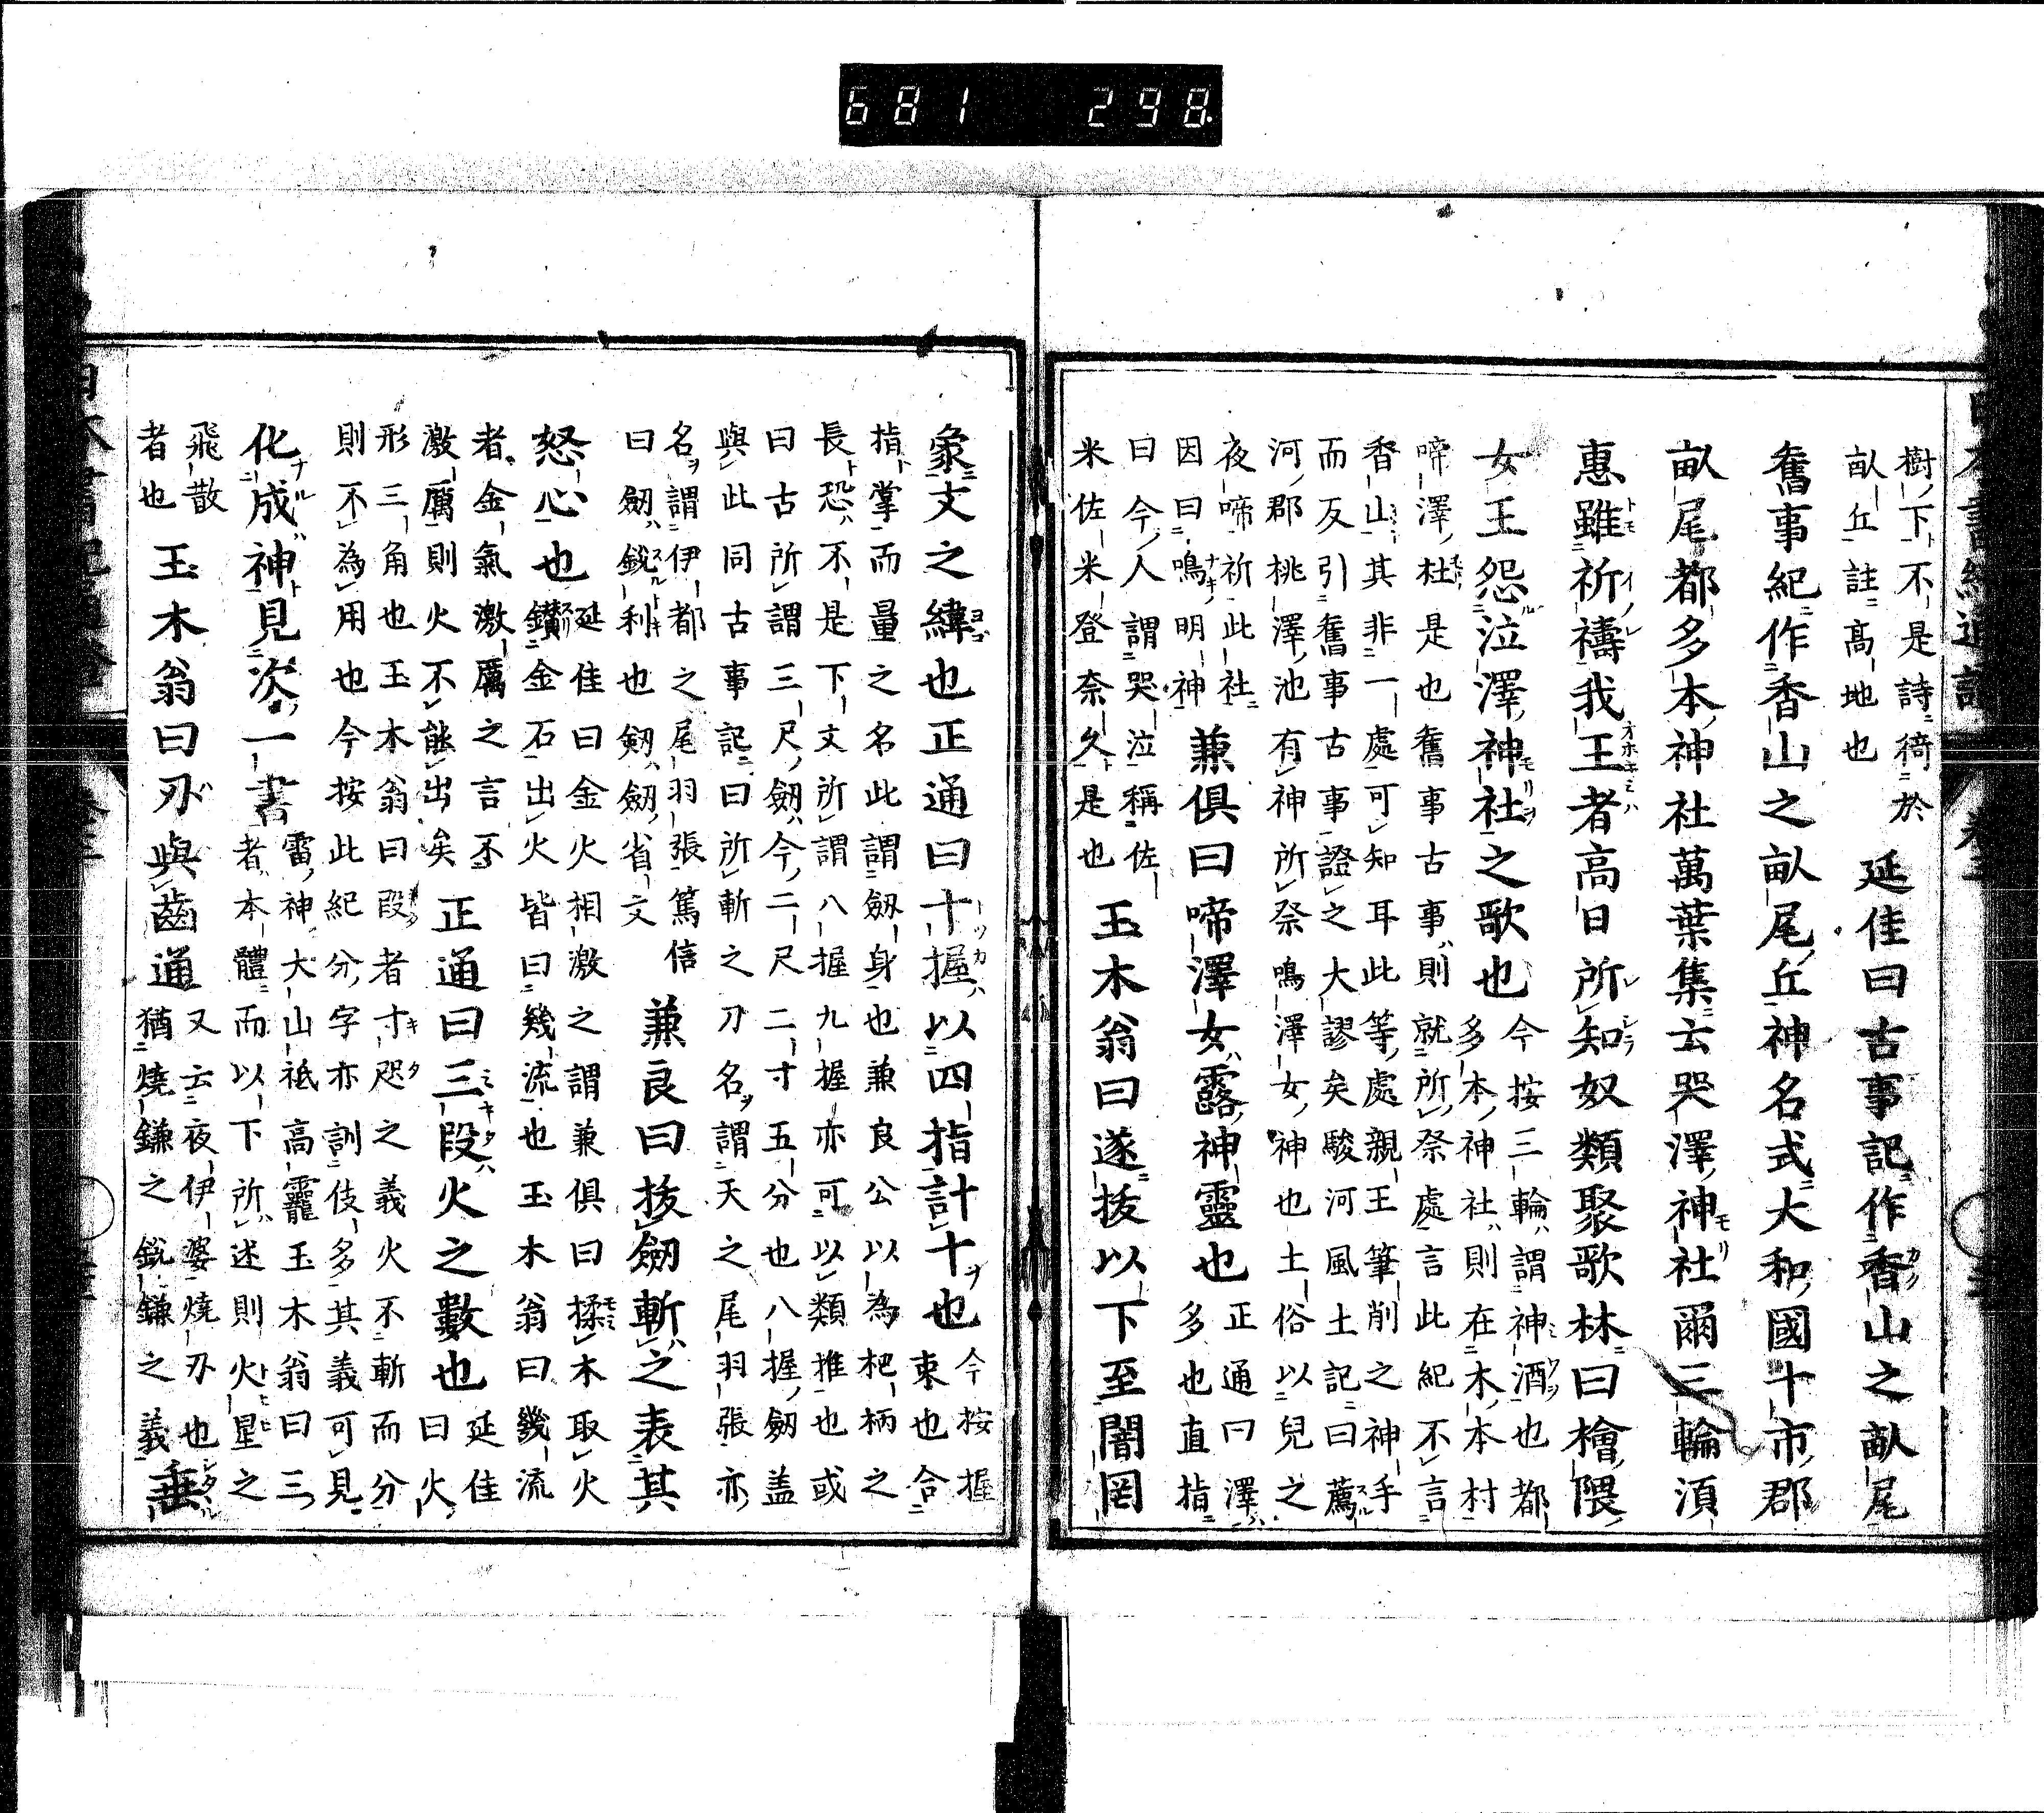 681 298
樹下不是詩二倚於
畝丘註高地也
延佳曰古事記作香山之畝尾
舊事紀作香山之畝尾丘神名式大和國十市郡
畝尾都多本神社萬葉集云哭澤神社爾三輪湏
惠雖祈禱我王者高日所知奴類聚歌林曰檜隈
女王怨泣澤神社之歌也
今按三輪謂神酒也都
多本神社則在木本村
啼澤杜是也舊事古事則就所祭處言此紀不言
香山其非一處可知耳此等處親王筆削之神手
而反引舊事古事證之大謬矣駿河風土記曰薦
河郡桃澤池有神所祭鳴澤女神也土俗以兒之
夜啼祈此社
因曰鳴明神
兼俱曰啼澤女露神靈也
正通曰澤
多也直指
曰今人謂哭泣稱佐
米佐米登奈久是也
玉木翁曰遂拔以下至闇罔
象文之緯也正通曰十握以四指計十也
今按握
束也合
指掌而量之名此謂劔身也兼良公以為杷柄之
長恐不是下文所謂八握九握亦可以類推也或
曰古所謂三尺劔今二尺二寸五分也八握劔盖
與此同古事記曰所斬之刀名謂天之尾羽張亦
名謂伊都之尾羽張篤信
曰劔銳利也劔劔省文
兼良曰拔劔斬之表其
怒心也
延佳曰金火相激之謂兼俱曰揉木取火
鑚金石出火皆曰幾流也玉木翁曰幾流
者金氣激厲之言不
激厲則火不能出矣
正通曰三段火之數也
延佳
曰火
形三角也玉木翁曰段者寸咫之義火不斬而分
則不為用也今按此紀分字亦訓伎多其義可見
化成神見次一書
雷神大山祇高龗玉木翁曰三
者本體而以下所述則火星之
飛散
者也
玉木翁曰刃與齒通
又云夜伊婆燒刃也
猶燒鎌之銳鎌之義
垂